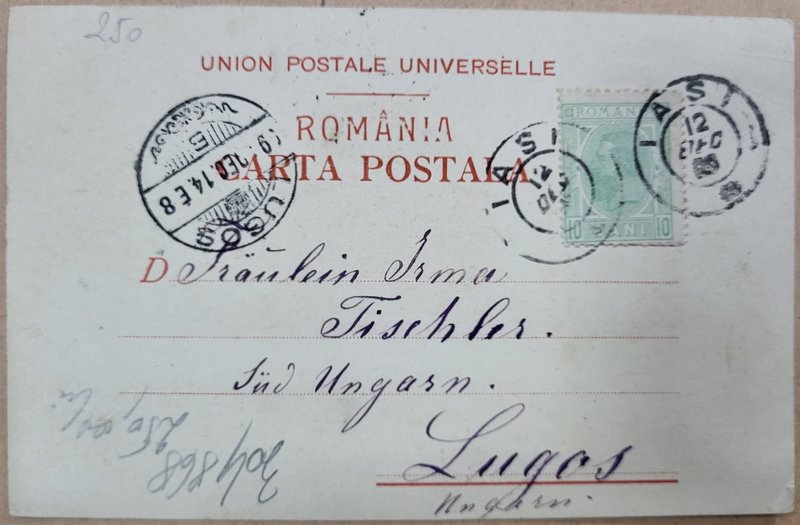 250
UNION POSTALE UNIVERSELLE
ROMÂNIA
CARTA POSTALA
ROMANIA
10 BANI 10
IASI
12
DEC
IASI
12
DEC
LUGOS
D Fräulein Irma
Tischler.
Süd Ungarn.
Lugos
Ungarn.
304868
250,000
lei